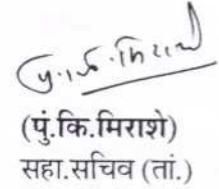 पुं.कि.मिराशे
(पुं.कि.मिराशे)
सहा.सचिव (तां.)